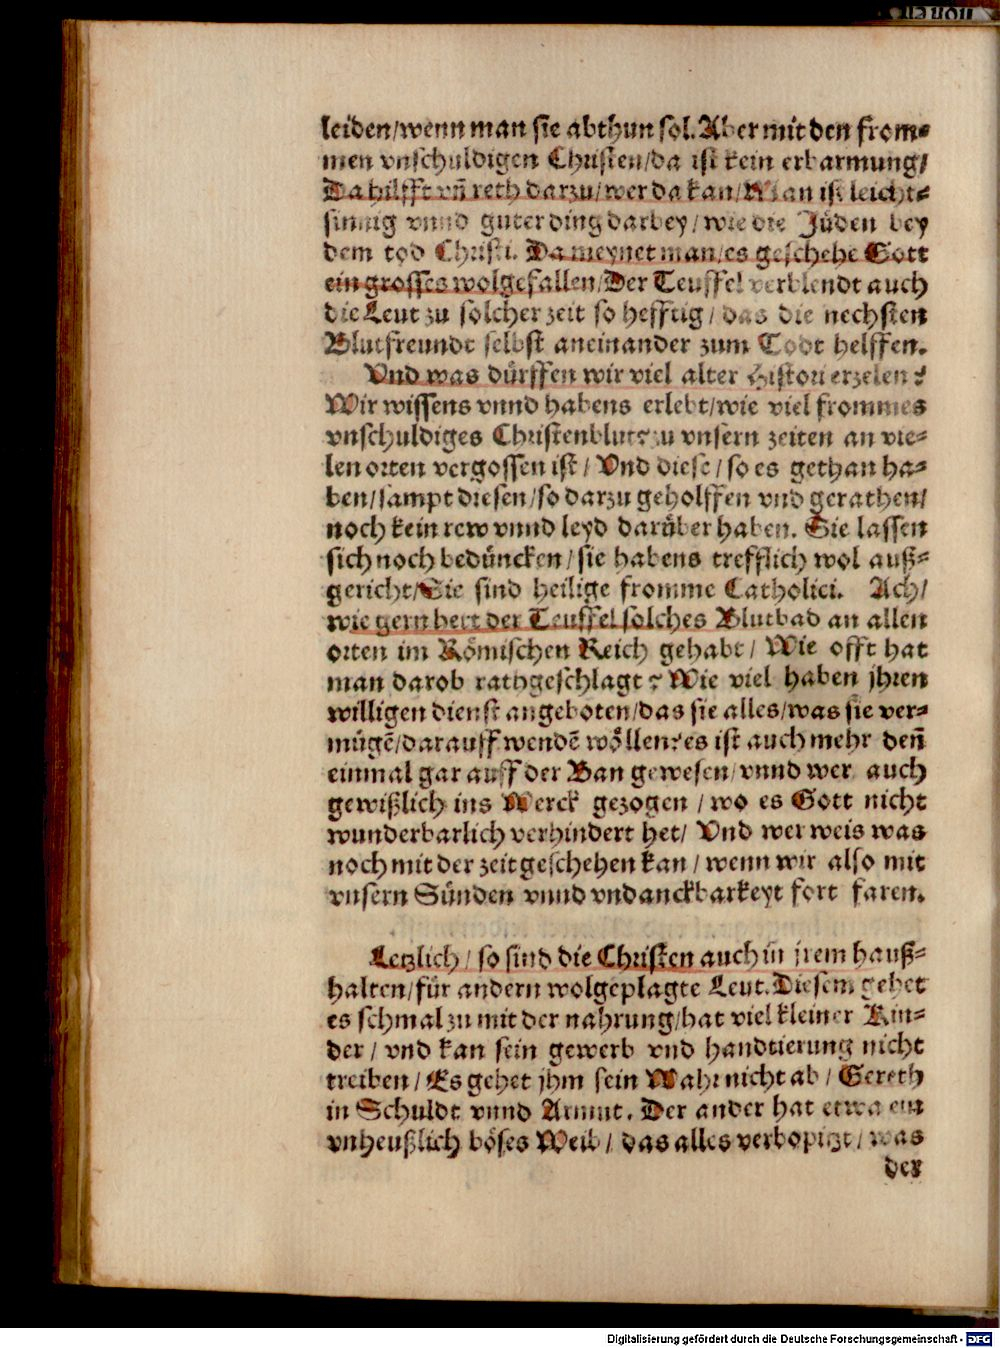 leiden/wenn man sie abthun sol. Aber mit den from-
men vnschuldigen Christen/da ist kein erbarmung/
Da hilfft vñ reth darzu/wer da kan/Man ist leicht-
sinnig vnnd guter ding darbey/wie die Jüden bey
dem tod Christi. Da meynet man/es geschehe Gott
ein grosses wolgefallen/Der Teuffel verblendt auch
die Leut zu solcher zeit so hefftig/das die nechsten
Blutfreundt selbst aneinander zum Todt helffen.
Vnd was dürffen wir viel alter Histori erzelen?
Wir wissens vnnd habens erlebt/wie viel frommes
vnschuldiges Christenbluts zu vnsern zeiten an vie-
len orten vergossen ist/Vnd diese/so es gethan ha-
ben/sampt diesen/so darzu geholffen vnd gerathen/
noch kein rew vnnd leyd darüber haben. Sie lassen
sich noch bedüncken/sie habens trefflich wol auß-
gericht/Sie sind heilige fromme Catholici. Ach/
wie gern hett der Teuffel solches Blutbad an allen
orten im Römischen Reich gehabt/Wie offt hat
man darob rathgeschlagt? Wie viel haben jhren
willigen dienst angeboten/das sie alles/was sie ver-
mügẽ/darauff wendẽ wöllen? es ist auch mehr deñ
einmal gar auff der Ban gewesen/vnnd wer auch
gewißlich ins Werck gezogen/wo es Gott nicht
wunderbarlich verhindert het/Vnd wer weis was
noch mit der zeit geschehen kan/wenn wir also mit
vnsern Sünden vnnd vndanckbarkeyt fort faren.
Letzlich/so sind die Christen auch in jrem hauß-
halten/für andern wolgeplagte Leut. Diesem gehet
es schmal zu mit der nahrung/hat viel kleiner Kin-
der/vnd kan sein gewerb vnd handtierung nicht
treiben/Es gehet jhm sein Wahr nicht ab/Gereth
in Schuldt vnnd Armut. Der ander hat etwa ein
vnheußlich böses Weib/das alles verbopitzt/was
der
Digitalisierung gefördert durch die Deutsche Forschungsgemeinschaft - DFG